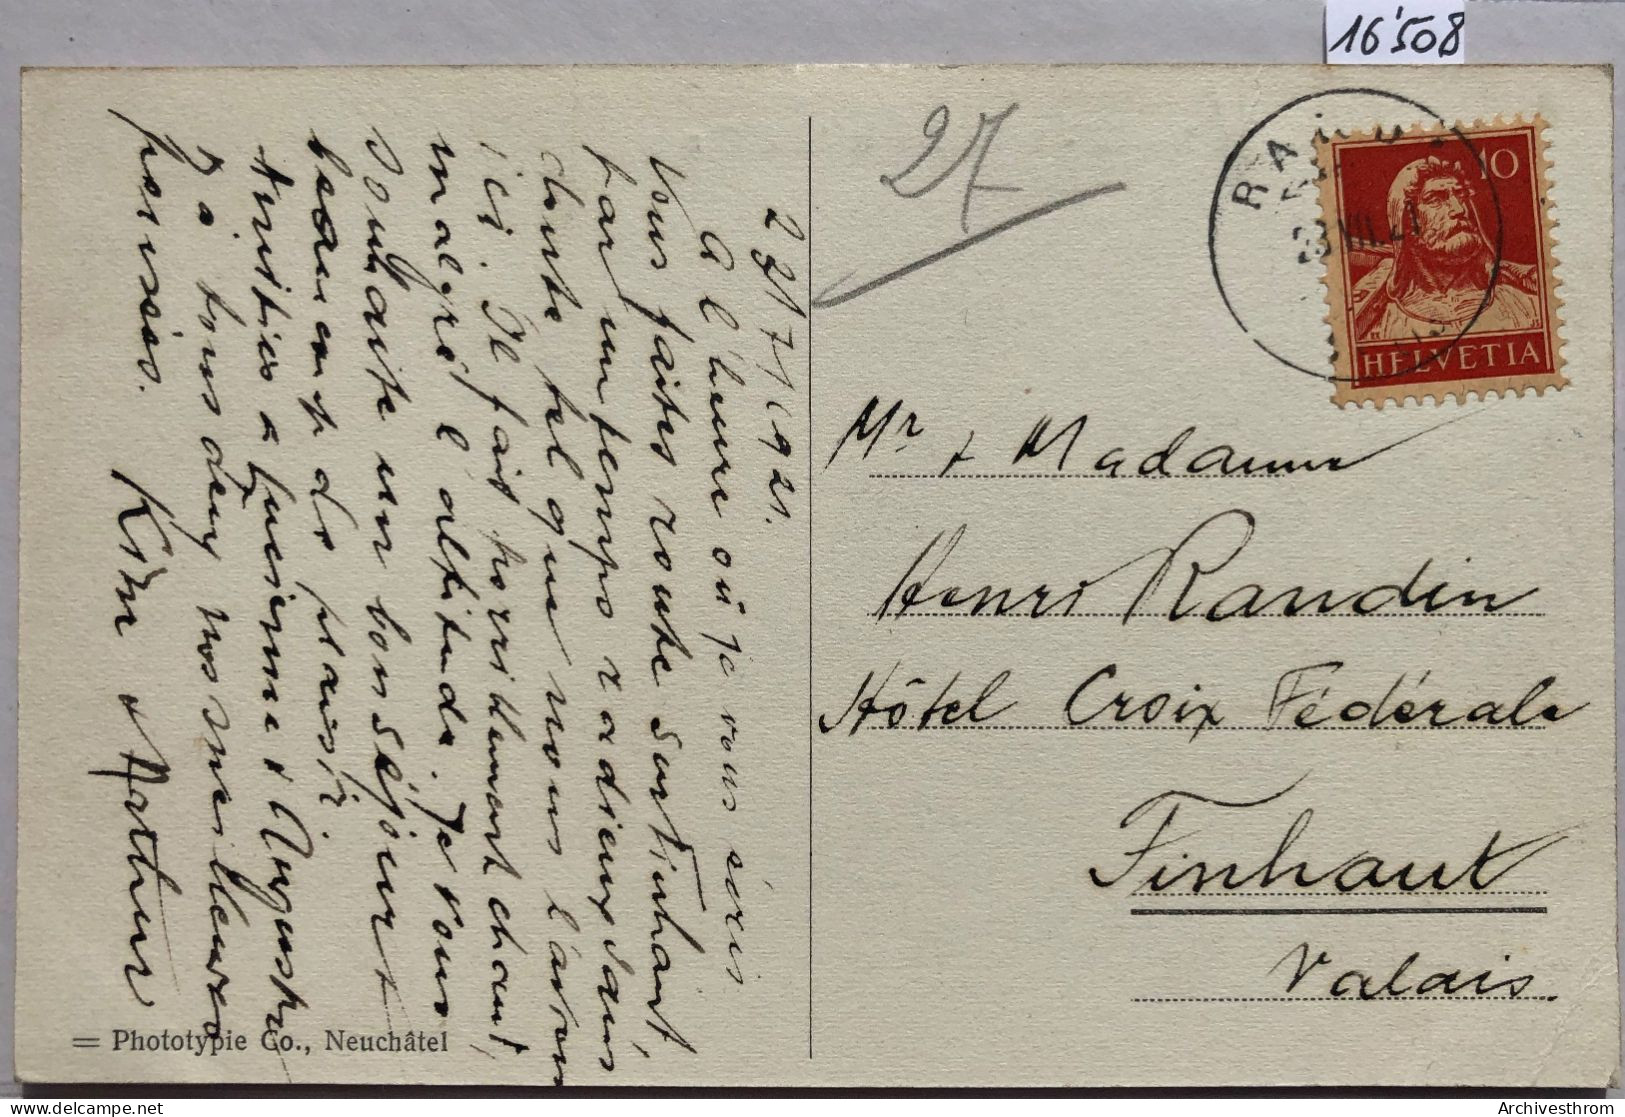 16'508
27
22/7/1921.
A l'heure où je vous écris
vous faites route sur Finhaut,
par un temps radieux sans
doute tel que nous l'avons
ici. Il fait horriblement chaud,
malgré l'altitude. Je vous
souhaite un bon séjour &
beaucoup de plaisir
Amitiés à & Auguste
& à vous deux nos meilleures
pensées.
Arthur
RA
23.VII.21
10
HELVETIA
Mr & Madame
Henri Randin
Hôtel Croix Fédérale
Finhaut
Valais.
= Phototypie Co., Neuchâtel
Archivesthrom